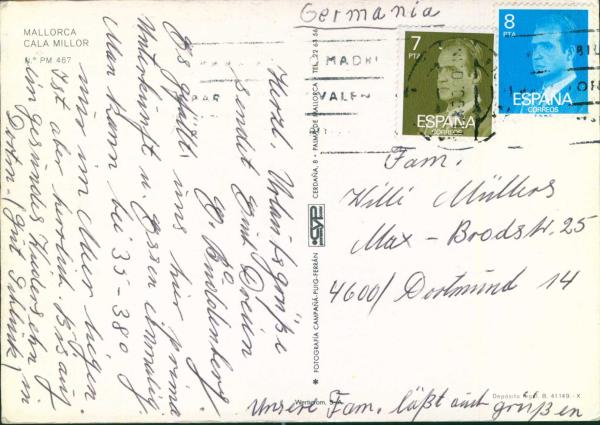 MALLORCA
CALA MILLOR
N.º PM 467
Germania
7
PTA
ESPAÑA
CORREOS
8
PTA
ESPAÑA
CORREOS
MADRI
VALEN
Herzl. Urlaubsgrüße
sendet Euch
Es gefällt uns hier prima
Unterkunft u. Essen
Man kann bei 35-38°
nur im Meer liegen.
Ist aber herrlich. Bis auf
ein gesundes Wiedersehn in
Dortm.
CERDAÑA, 8 - PALMA DE MALLORCA - TEL. 22 63 56
* FOTOGRAFIA CAMPAÑÁ-PUIG-FERRÁN
Fam.
Willi Müllers
Max-Brodstr. 25
4600/ Dortmund 14
Depósito legal B. 41149.-X
Unsere Fam. läßt auch grüßen